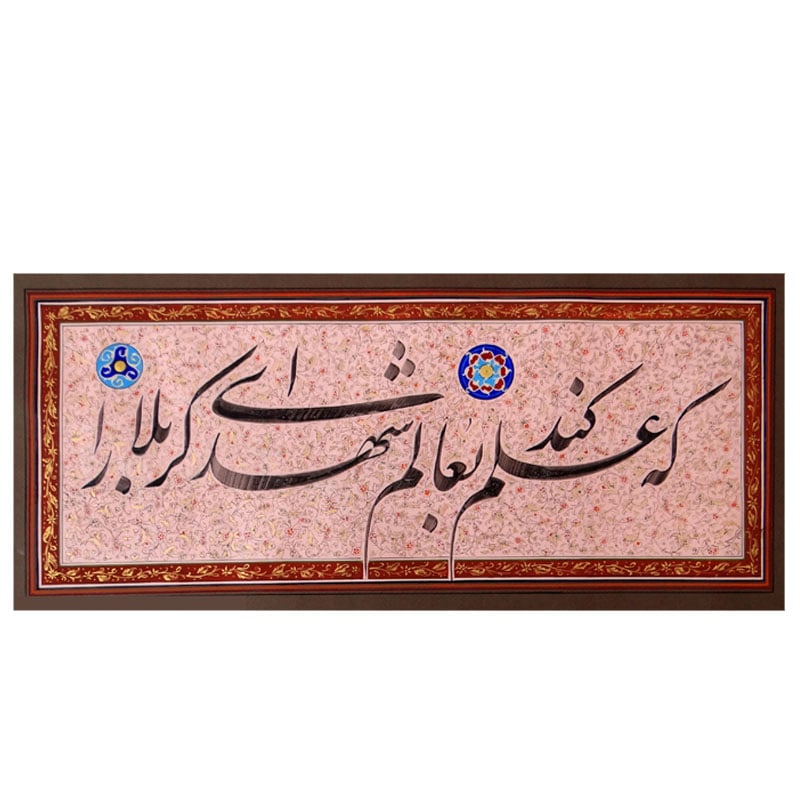 که علم کند بعالم شهدای کربلا را